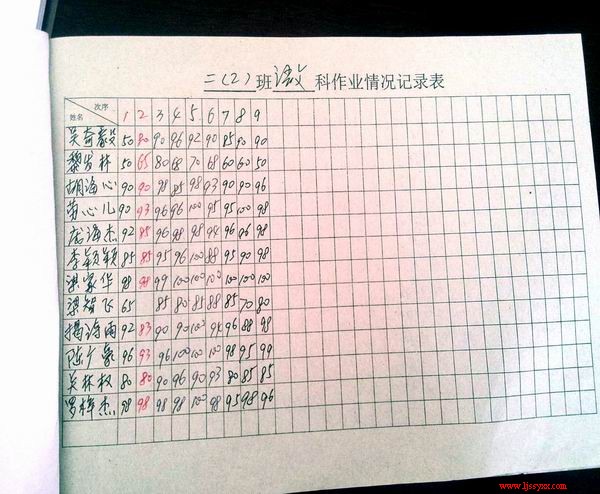 二(2)班 语文 科作业情况记录表
次序 1 2 3 4 5 6 7 8 9
姓名
吴奇毅 50 80 90 96 92 90 85 90 90
黎发林 50 65 80 68 70 68 60 60 50
胡海心 90 90 98 85 98 93 90 90 96
劳心儿 90 93 96 96 100 95 95 100 98
庞海杰 92 85 96 98 98 94 96 96 98
李颖颖 85 85 95 96 100 88 95 90 98
梁家华 98 98 99 100 100 100 100 100 100
梁智飞 65 85 80 85 88 85 70 80
杨诗雨 92 83 90 90 100 94 96 88 98
陈广豪 96 93 96 100 100 100 98 95 99
吴林权 80 80 90 96 90 93 80 85 85
罗梓杰 98 98 98 98 100 98 95 98 96
www.ljssyxx.com